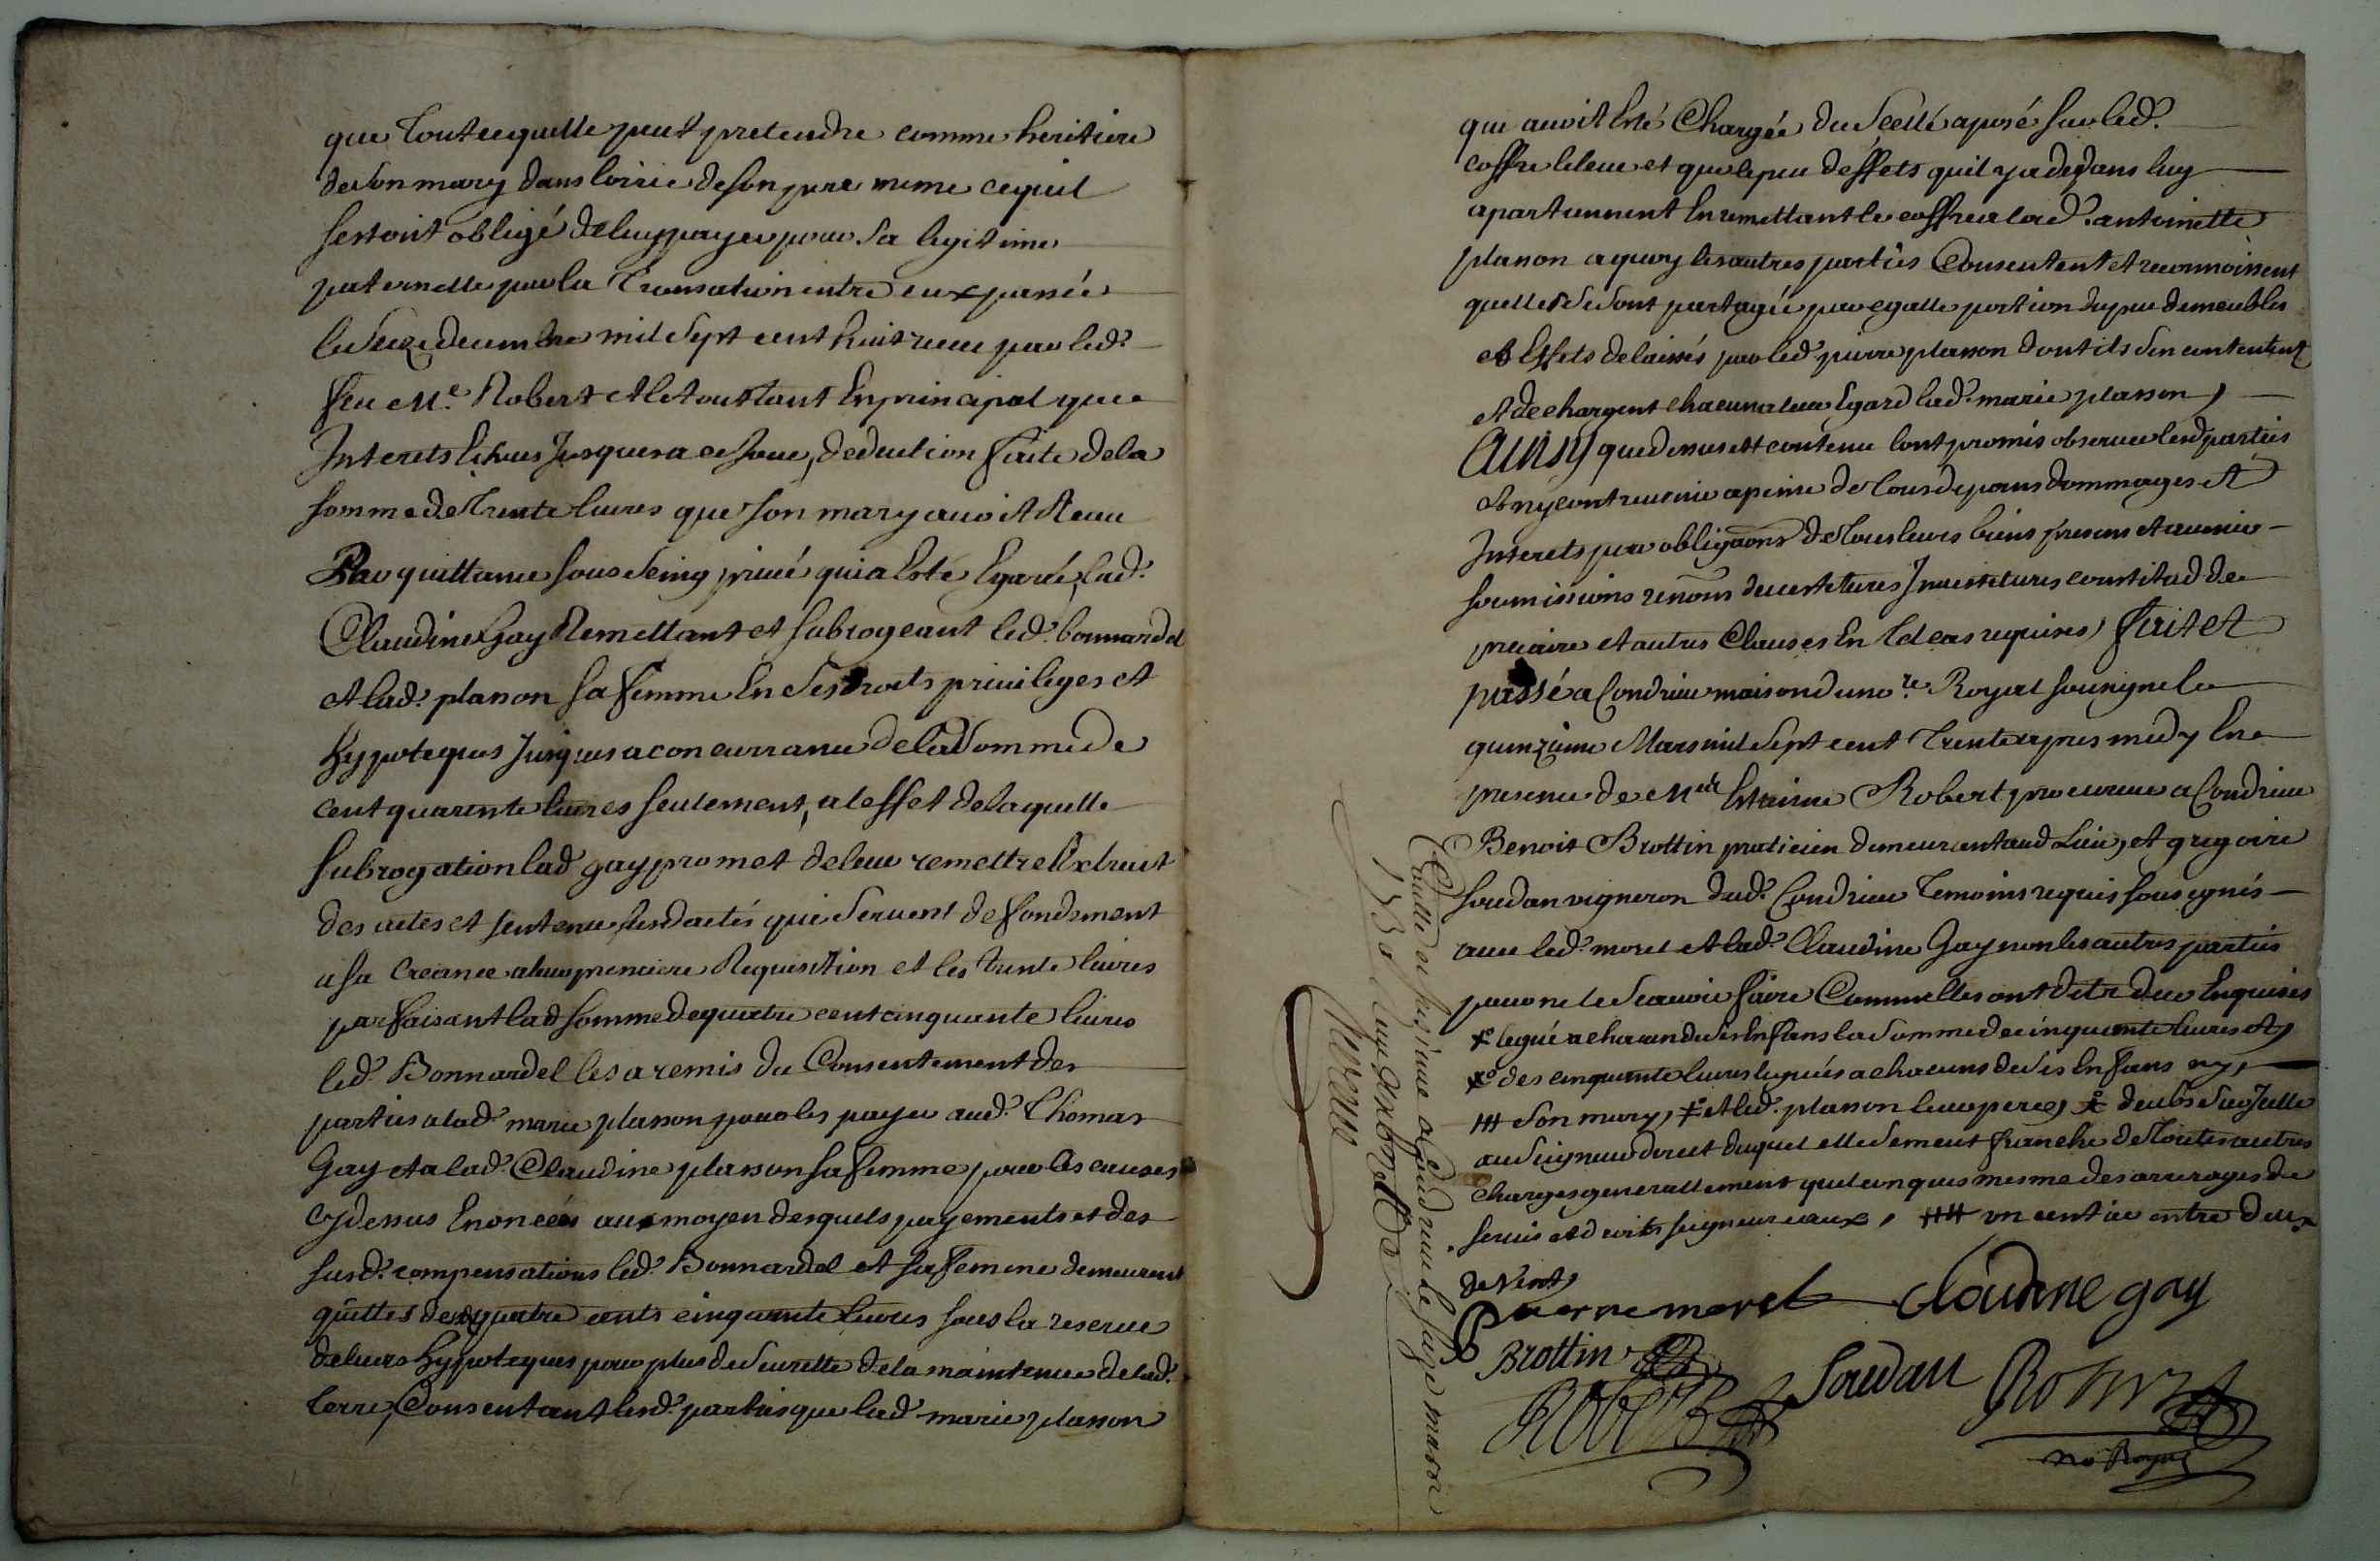 que Tout ce quelle peut pretendre comme heritiere
de son mary dans loirie de son pere meme ce quil
sestoit obligé de luy payer pour sa legitime
paternelle par la Transation entre eux passée
le seize decembre mil sept cent huit receu par led.
feu Me. Robert et le tout tant En principal que
Interets Echus Jusques a ce Jour, deduction faite de la
somme de Trente livres que son mary avoit Receu
Par quittance sous seing privé qui a Esté Egarée, lad.
Claudine Gay Remettant et subrogeant led. bonnardel
et lad. planson sa femme En ses droits privileges et
hypoteques Jusques a concurrance de la somme de
cent quarente livres seulement, a leffet de laquelle
subrogation lad gay promet de leur remettre Extrait
des actes et sentence susdactés qui servent de fondement
a sa creance a leur premiere Requisition et les trente livres
parfaisant lad somme de quatre cent cinquante livres
led. Bonnardel les a remis du Consentement des
parties a lad. marie planson pour les payer aud. Thomas
Gay et a lad. Claudine planson sa femme pour les causes
cy dessus Enoncées au moyen desquels payements et des
susd. compensations led. Bonnardel et sa femme demeurent
quittes des quatre cents cinquante livres sous la reserve
de leurs hypoteques pour plus de seurette de la maintenue de lad.
terre, Consentant lesd. parties que lad marie planson
qui avoit Esté Chargée du scellé aposé sur led.
coffre leleve et que le peu deffets quil y a dedans luy
apartiennent En remettant le coffre a lad. antoinette
planson a quoy les autres parties Consentent et reconnoissent
quelles se sont partagée par egalle portion du peu de meubles
et Effets delaissés par led. pierre planson dont ils sen contentent
et dechargent chacun a leur Egard lad. marie planson,
Ainsy que dessus est contenu lont promis observer lesd parties
et ny contrevenir a peine de tous depans dommages et
Interets par obligaons de tous leurs biens presens et avenir
soumissions renons devestitures Investitures constitad de
precaire et autres Clauses En tel cas requises, fait et
passé a Condrieu maison du nore. Royal soussigne le
quinzieme Mars mil sept cent Trente apres midy En
presence de Me Estienne Robert procureur a Condrieu
Benoit Brottin praticien demeurant aud Lieu, et gregoire
soudan vigneron dud. Condrieu Temoins requis sousignés
avec led. morel et lad. Claudine Gay non les autres parties
pour ne le scavoir faire Comme elles ont dit de ce Enquises
legué a chacun de ses Enfans la somme de cinquante livres et
des cinquante livres legués a chacuns de ses Enfans ny,
son mary, et led. planson leur pere,
au seigneur direct duquel elle se meut franche de Toutes autres
charges generallement quelconques mesme des arrerages de
servis et droits seigneuriaux, un centier entre deux
de vint
Pierre morel Claudine gay
Brottin
Soudan
Robert
Robert
no Royal
Controllé
a Condrieu le seize mars
1730